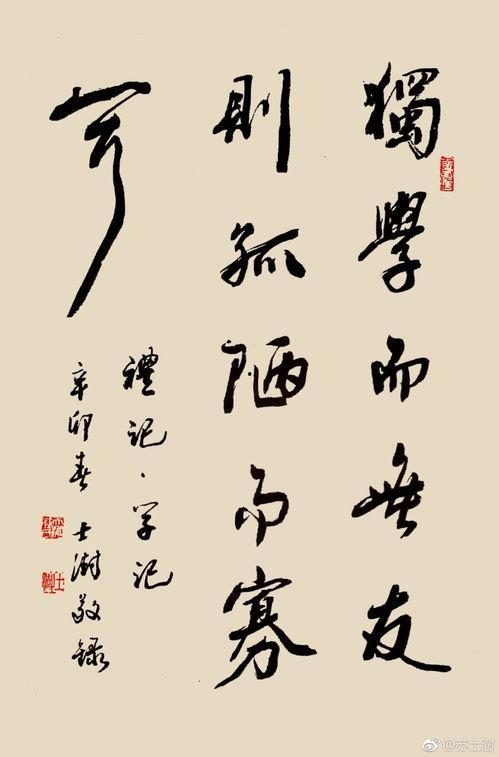 獨學而無友
則孤陋而寡
聞
禮記·学记
辛卯春士澍敬録
@苏士澍